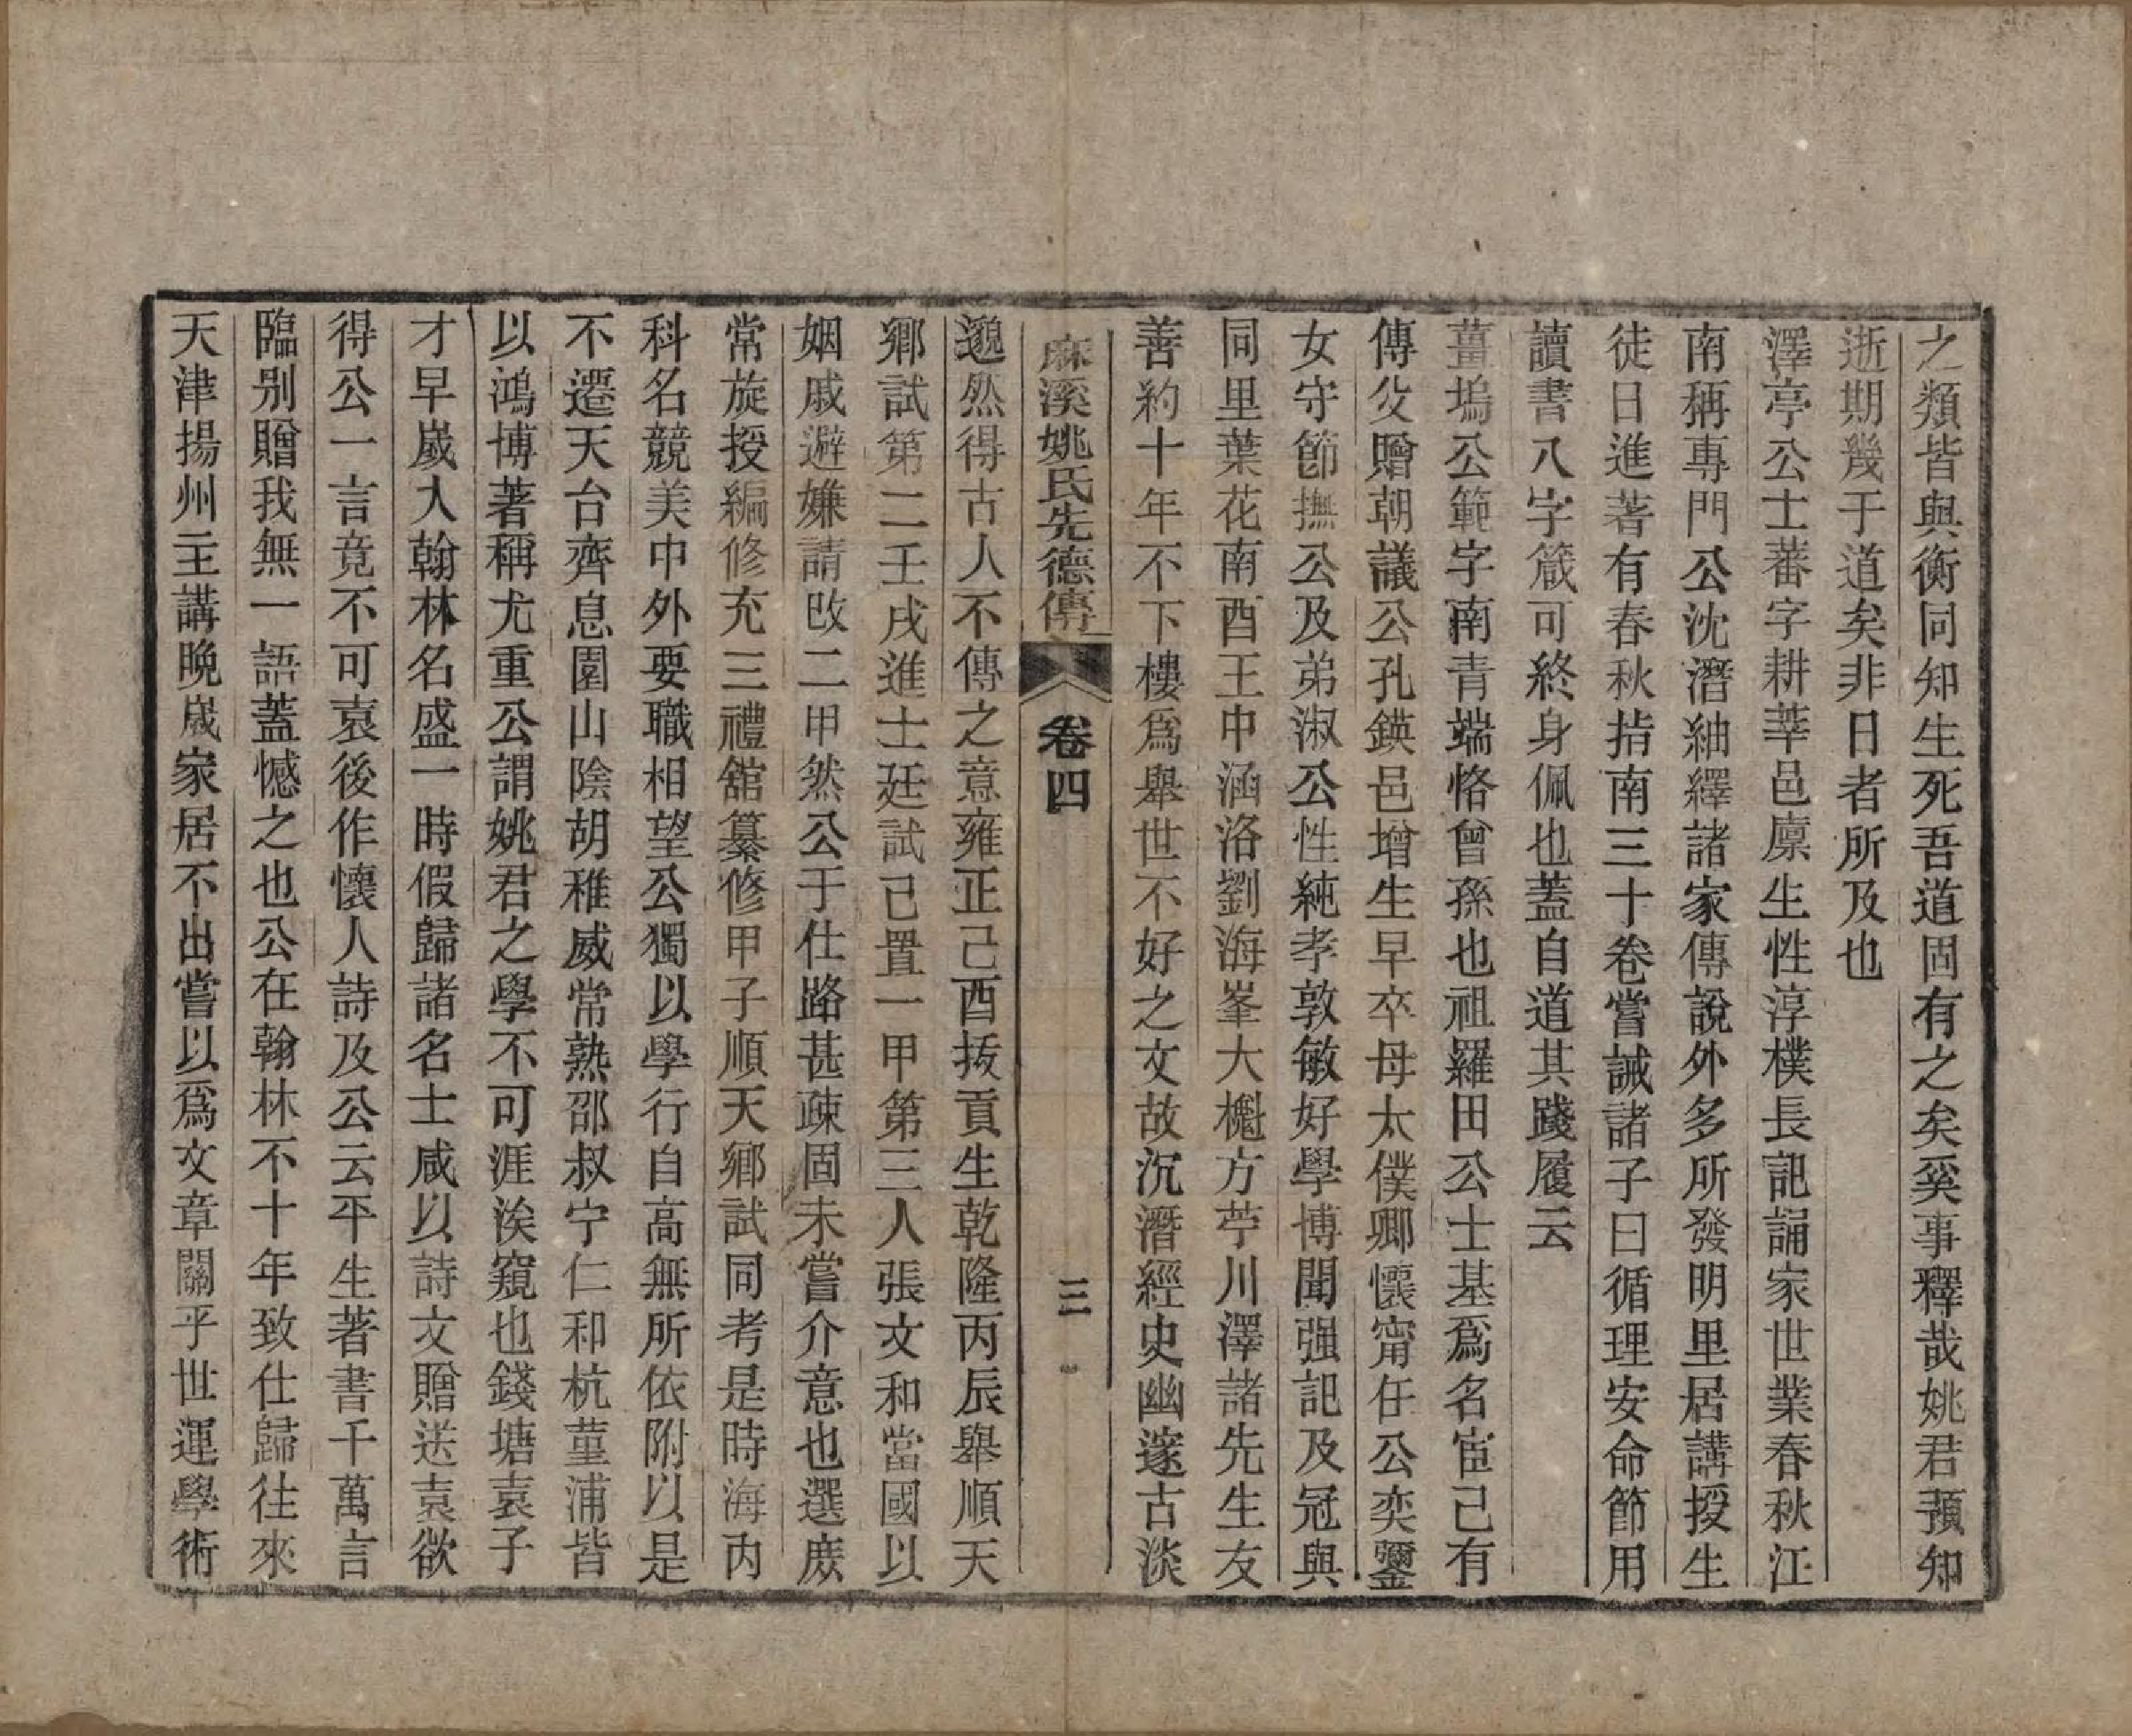 之類皆與衡同知生死吾道固有之矣奚事釋哉姚君預知
逝期幾于道矣非日者所及也
澤亭公士蕃字耕莘邑廩生性淳樸長記誦家世業春秋江
南稱專門公沈潛紬繹諸家傳說外多所發明里居講授生
徒日進著有春秋指南三十卷嘗誡諸子曰循理安命節用
讀書八字箴可終身佩也蓋自道其踐履云
薑塢公範字南青端恪曾孫也祖羅田公士基爲名宦己有
傳父贈朝議公孔鍈邑增生早卒母太僕卿懷寗任公奕鑾
女守節撫公及弟淑公性純孝敦敏好學博聞强記及冠與
同里葉花南酉王中涵洛劉海峯大櫆方苧川澤諸先生友
善約十年不下樓爲舉世不好之文故沉潛經史幽邃古淡
麻溪姚氏先德傳 卷四 三
邈然得古人不傳之意雍正己酉拔貢生乾隆丙辰舉順天
鄉試第二壬戌進士廷試己置一甲第三人張文和當國以
姻戚避嫌請改二甲然公于仕路甚疎固未嘗介意也選庶
常旋授編修充三禮舘纂修甲子順天鄉試同考是時海內
科名競美中外要職相望公獨以學行自高無所依附以是
不遷天台齊息園山陰胡稚威常熟邵叔宁仁和杭菫浦皆
以鴻博著稱尤重公謂姚君之學不可涯涘窺也錢塘袁子
才早嵗入翰林名盛一時假歸諸名士咸以詩文贈送袁欲
得公一言竟不可袁後作懷人詩及公云平生著書千萬言
臨别贈我無一語蓋憾之也公在翰林不十年致仕歸往來
天津揚州主講晚嵗家居不出嘗以爲文章關乎世運學術